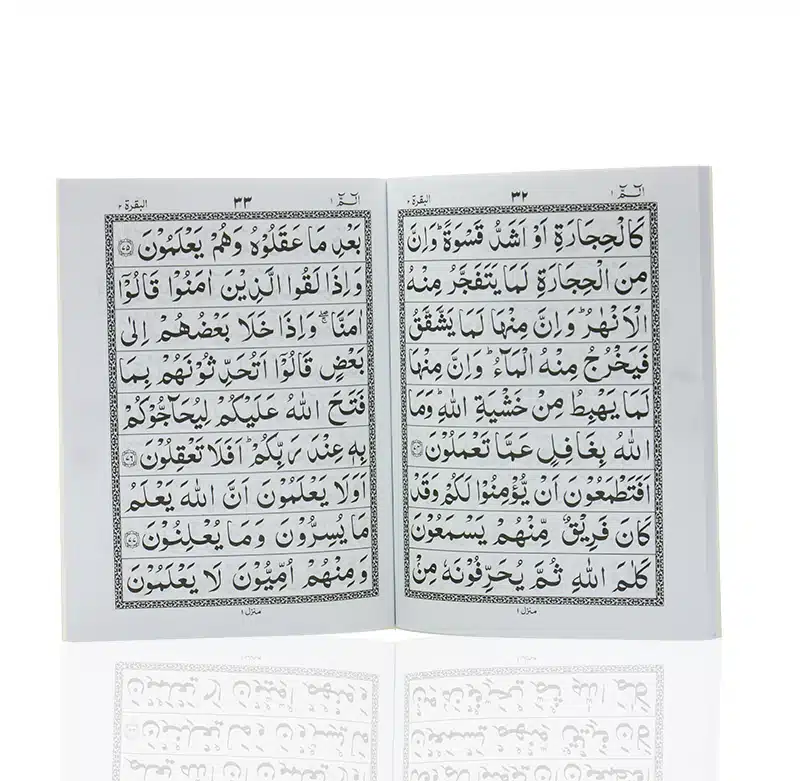 الٓمّٓ ١ ٣٢ البقرة ٢
كَالْحِجَارَةِ اَوْ اَشَدُّ قَسْوَةً ؕ وَاِنَّ
مِنَ الْحِجَارَةِ لَمَا يَتَفَجَّرُ مِنْهُ
الْاَنْهٰرُ ؕ وَاِنَّ مِنْهَا لَمَا يَشَّقَّقُ
فَيَخْرُجُ مِنْهُ الْمَآءُ ؕ وَاِنَّ مِنْهَا
لَمَا يَهْبِطُ مِنْ خَشْيَةِ اللّٰهِ ؕ وَمَا
اللّٰهُ بِغَافِلٍ عَمَّا تَعْمَلُوْنَ ﴿٧٤﴾
اَفَتَطْمَعُوْنَ اَنْ يُّؤْمِنُوْا لَكُمْ وَقَدْ
كَانَ فَرِيْقٌ مِّنْهُمْ يَسْمَعُوْنَ
كَلٰمَ اللّٰهِ ثُمَّ يُحَرِّفُوْنَهٗ مِنْۢ
منزل ١
الٓمّٓ ١ ٣٣ البقرة ٢
بَعْدِ مَا عَقَلُوْهُ وَهُمْ يَعْلَمُوْنَ ﴿٧٥﴾
وَاِذَا لَقُوا الَّذِيْنَ اٰمَنُوْا قَالُوْۤا
اٰمَنَّا ۖۚ وَاِذَا خَلَا بَعْضُهُمْ اِلٰى
بَعْضٍ قَالُوْۤا اَتُحَدِّثُوْنَهُمْ بِمَا
فَتَحَ اللّٰهُ عَلَيْكُمْ لِيُحَآجُّوْكُمْ
بِهٖ عِنْدَ رَبِّكُمْ ؕ اَفَلَا تَعْقِلُوْنَ ﴿٧٦﴾
اَوَلَا يَعْلَمُوْنَ اَنَّ اللّٰهَ يَعْلَمُ
مَا يُسِرُّوْنَ وَمَا يُعْلِنُوْنَ ﴿٧٧﴾
وَمِنْهُمْ اُمِّيُّوْنَ لَا يَعْلَمُوْنَ
منزل ١